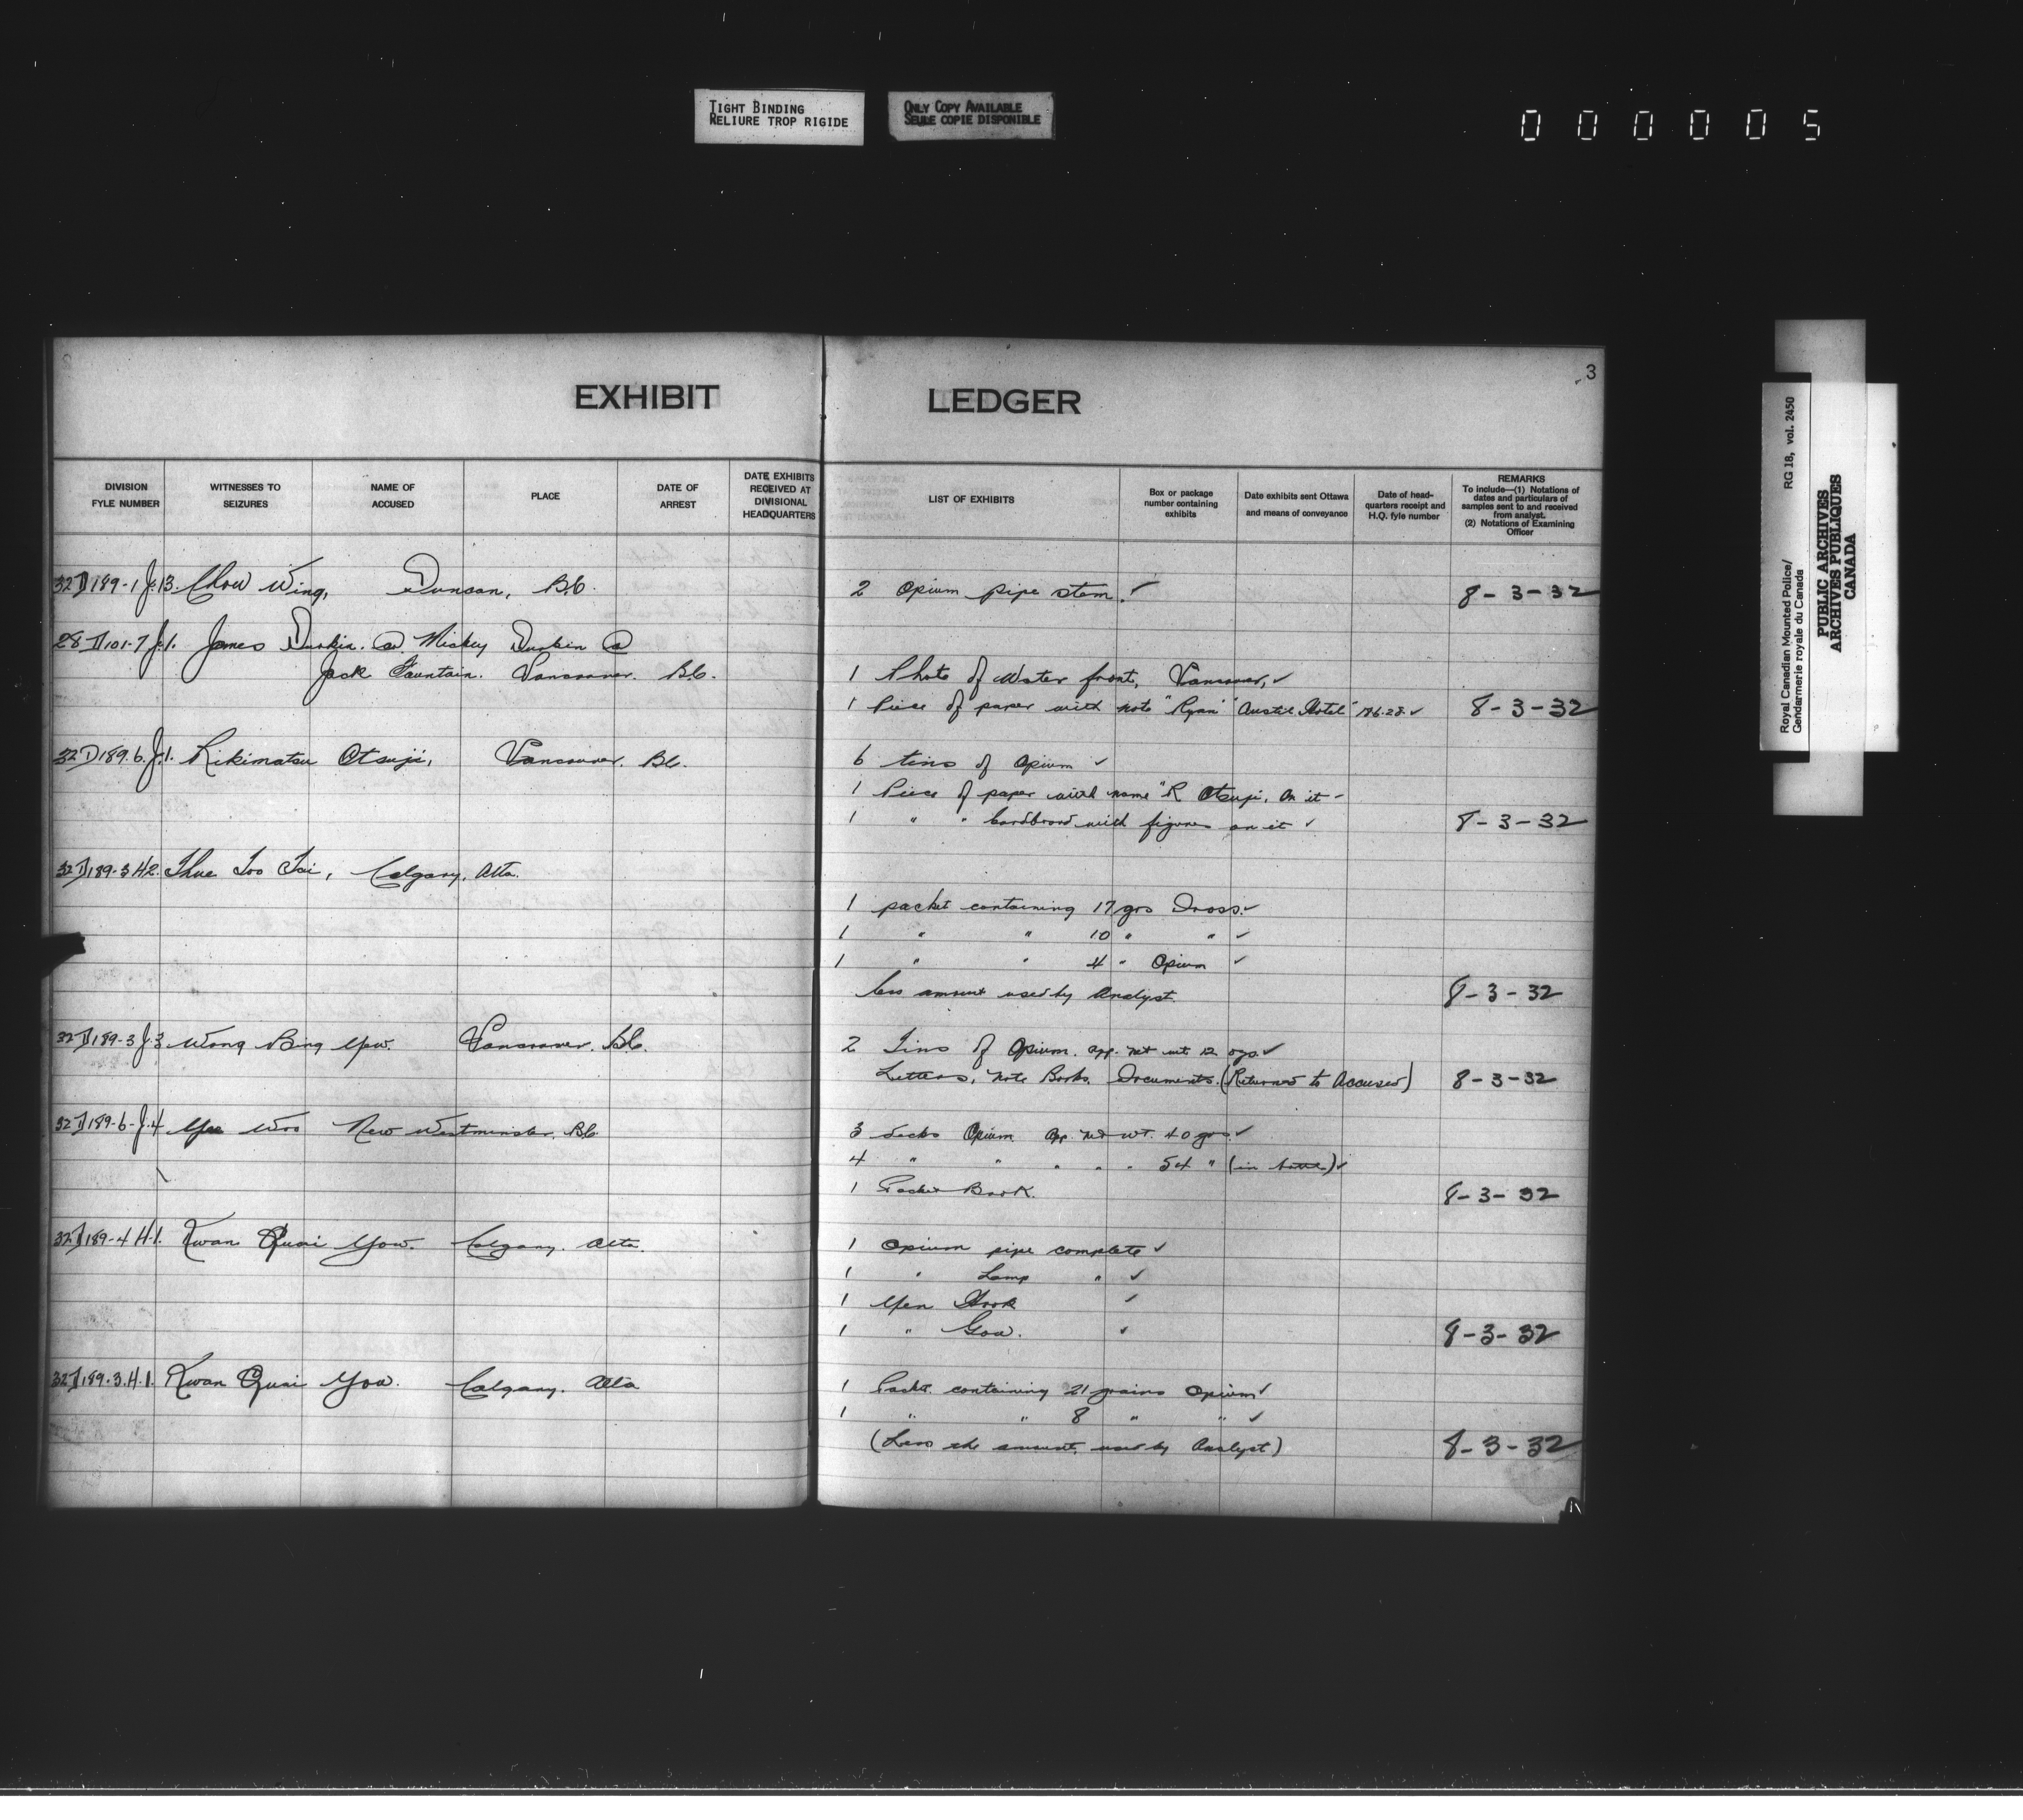 TIGHT BINDING
RELIURE TROP RIGIDE
ONLY COPY AVAILABLE
SEULE COPIE DISPONIBLE
000005
3
EXHIBIT LEDGER
DIVISION FYLE NUMBER
WITNESSES TO SEIZURES
NAME OF ACCUSED
PLACE
DATE OF ARREST
DATE EXHIBITS RECEIVED AT DIVISIONAL HEADQUARTERS
LIST OF EXHIBITS
Box or package number containing exhibits
Date exhibits sent Ottawa and means of conveyance
Date of head-quarters receipt and H.Q. fyle number
REMARKS
To include—(1) Notations of dates and particulars of samples sent to and received from analyst.
(2) Notations of Examining Officer
32D189-1 J.13. Chow Wing, Duncan, B.C. 2 Opium pipe stem. ✓ 8-3-32
28D101-7 J.1. James Durkin @ Mickey Durkin @
Jack Fountain. Vancouver. B.C. 1 Photo of Water front, Vancouver, ✓
1 Piece of paper with note "Ryan" "Austic Hotel" ✓ 8-3-32
32D189.6.J.1. Rikimatsu Otsuji, Vancouver. B.C. 6 tins of Opium ✓
1 Piece of paper with name "R Otsuji, On it -
1 " " Cardboard with figures on it ✓ 8-3-32
32D189-3 H2. Loo Tai, Calgary, Alta.
1 packet containing 17 grs Dross. ✓
1 " " 10 " " ✓
1 " " 4 " Opium ✓
less amount used by Analyst. 8-3-32
32D189-3 J.3 Wong Bing Yow. Vancouver. B.C. 2 Tins of Opium. app. net wt. 12 ozs. ✓
Letters, Note Books. Documents. (Returned to Accused) 8-3-32
32D189-6-J.4 Woo New Westminster. B.C. 3 decks Opium app. net wt. 40 grs. ✓
4 " " " " " 54 " (in bottle) ✓
1 Pocket Book. 8-3-32
32D189-4 H.1. Kwan Quai Yow. Calgary. Alta. 1 Opium pipe complete ✓
1 " Lamp " ✓
1 Yen Hook ✓
1 " Gow. ✓ 8-3-32
32D189.3.H.1. Kwan Quai Yow. Calgary. Alta 1 Packt. containing 21 grains Opium ✓
1 " " 8 " " ✓
(Less the amount used by Analyst) 8-3-32
Royal Canadian Mounted Police/ RG 18, vol. 2450
Gendarmerie royale du Canada
PUBLIC ARCHIVES
ARCHIVES PUBLIQUES
CANADA